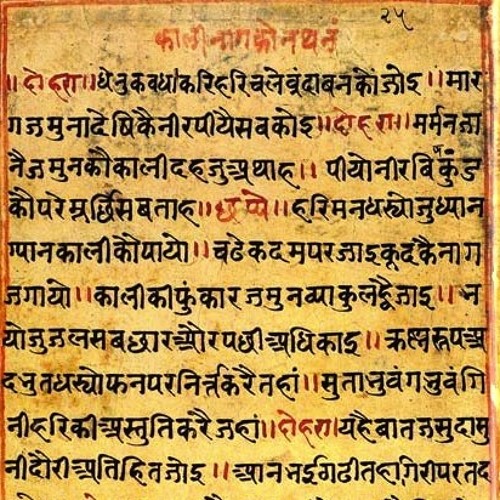 २५
कालीनागकोनथनं
॥दोहरा॥धेनुकवधाकरिहरिचलेवृंदावनकोंजोइ॥मार
गजमुनादेषिकैनीरपीयैसबकोइ॥दोहरा॥मर्मनजा
नैजमुनकौकालीदहजुअथाह॥पीयोनीरबिकुंड
कौपरेमुर्छिसबताह॥छप्पे॥हरिमनधस्योजुध्यान
ग्यानकालीकोपायो॥बढेकदमपरजाइकूदकैनाग
जगायो॥कालीकीफुंकारजमुनव्याकुलह्वैजाइ॥भ
योजुजलसबछारऔरपछीअधिकाइ॥कृष्नरूपअ
दभुतधस्योफनपरनिर्त्तकरैतहां॥सुताभुवंगभुवंगि
नीहरिकीअस्तुतिकरैजहां॥दोहरा॥यहैबातजसुदासु
नीदौरीअतिहितजोइ॥आनभईगढीतहागिरीपरतद